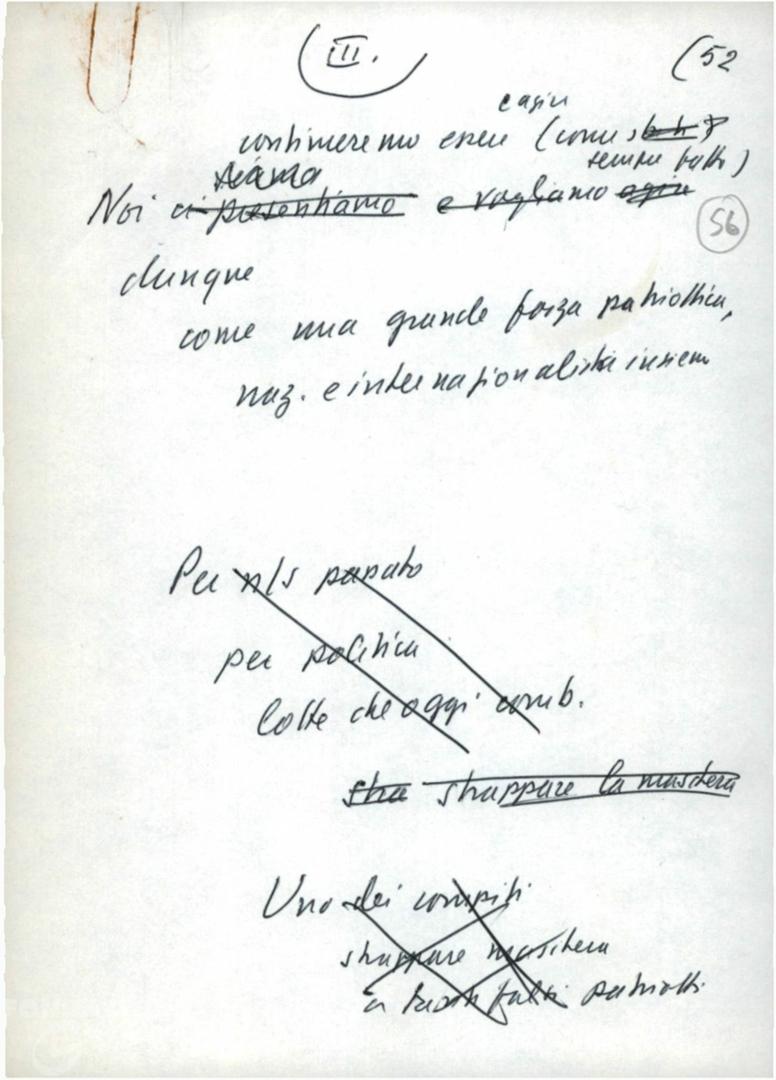 III.
(52
continueremo essere (come
sempre fatto)
siamo
Noi ci presentiamo e vogliamo agire
56
dunque
come una grande forza patriottica,
naz. e internazionalista insieme
Per n/s passato
per politica
lotte che oggi comb.
stra strappare la maschera
Uno dei compiti
strappare maschera
a falsi patriotti